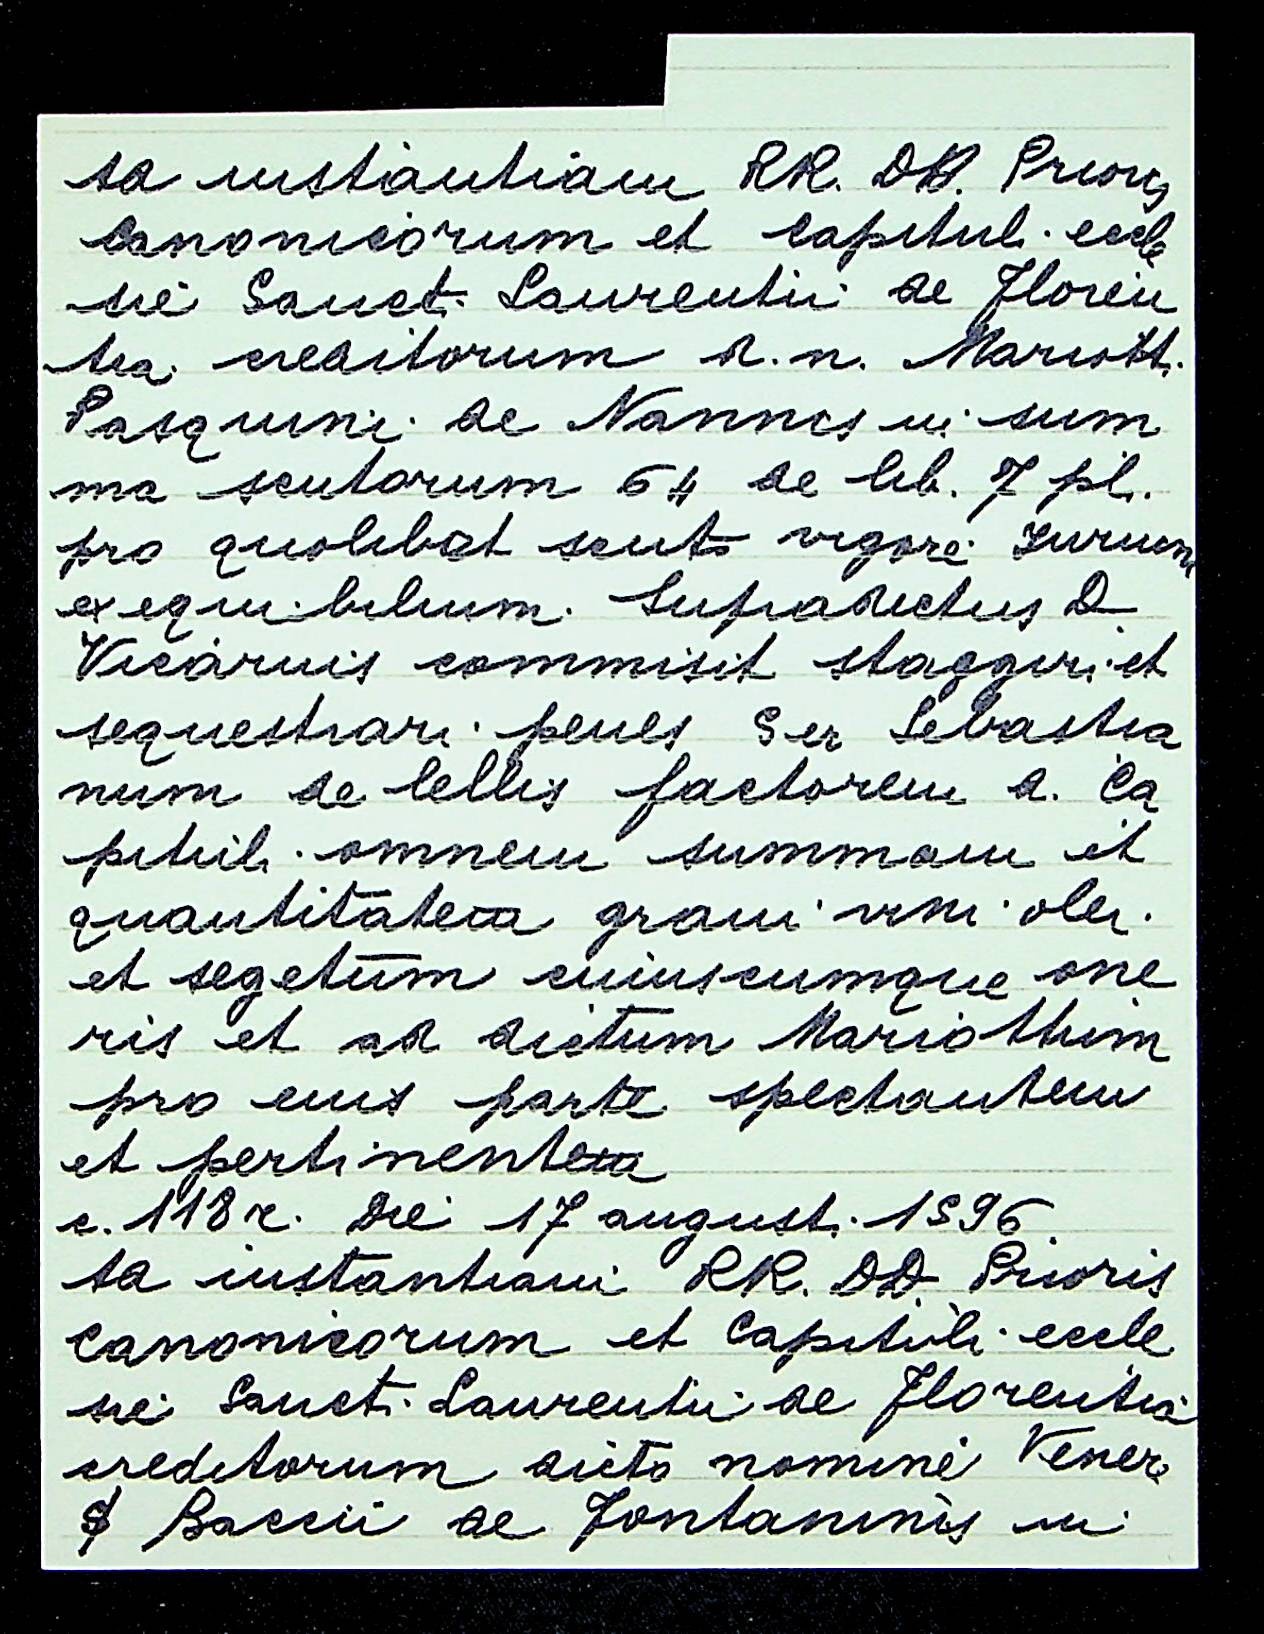 ta instantiam RR. DD. Prioris
canonicorum et capituli eccle
sie Sancti Laurentii de Floren
tia creditorum d. n. Mariotti
Pasquini de Nannis in sum
ma scutorum 64 de lib. 7 pl.
pro quolibet scuto vigore Iurium
exequibilium. Supradictus D.
Vicarius commisit staggiri et
sequestrari penes Ser Sebastia
num de Lellis factorem d. Ca
pituli omnem summam et
quantitatem grani vini olei
et segetum cuiuscumque one
ris et ad dictum Mariothum
pro eius parte spectantem
et pertinentem
c. 118 r. Die 17 augusti 1596
ta instantiam RR. DD. Prioris
canonicorum et Capituli eccle
sie Sancti Laurentii de Florentia
creditorum dicto nomine Veneri
Baccii de Fontaninis in